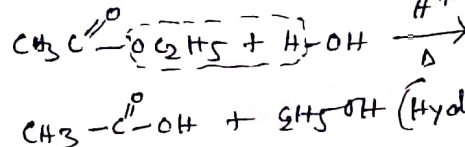 CH3 C(=O)-OC2H5 + H-OH H+ Δ →
CH3-C(=O)-OH + C2H5OH (Hyd